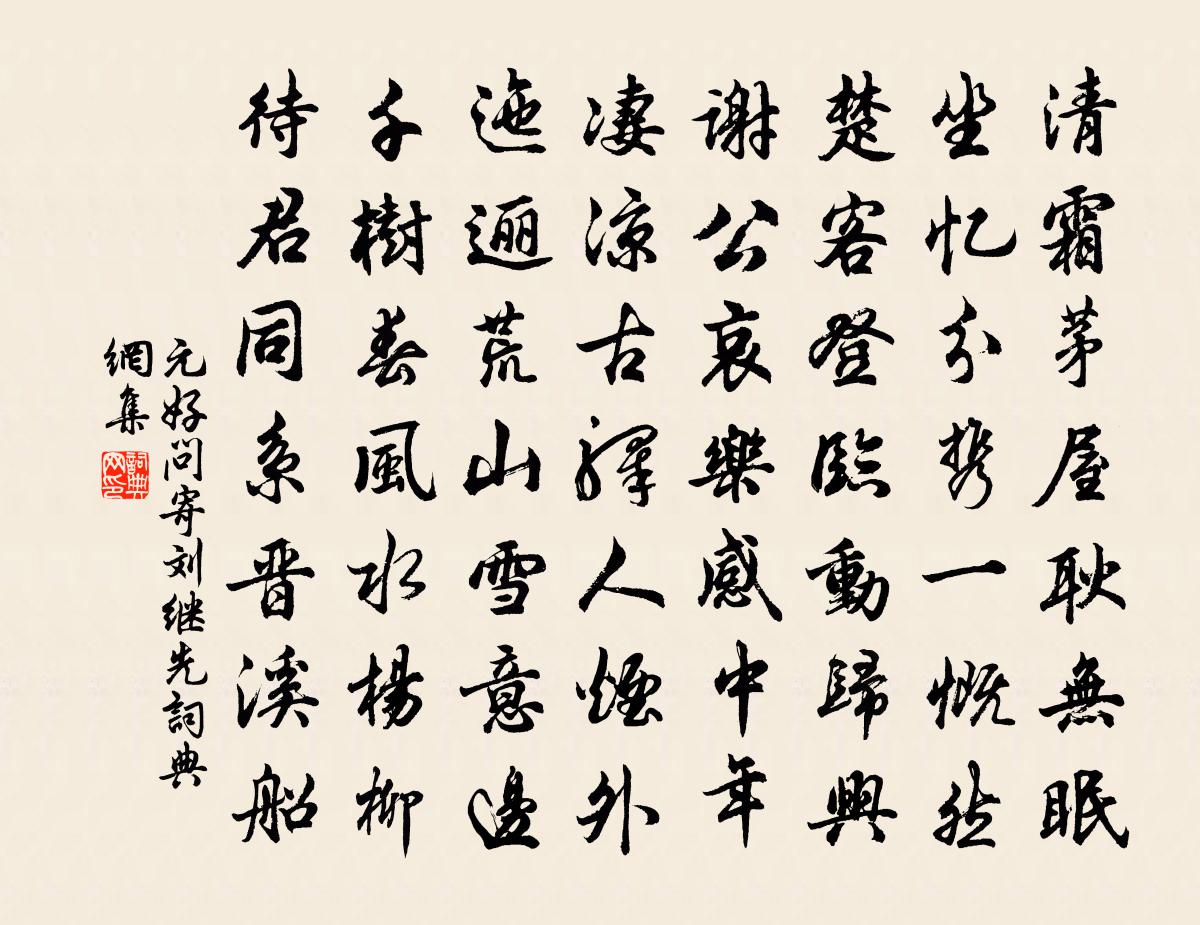 清霜茅屋耿無眠
坐忆分携一慨然
楚客登臨動歸興
謝公哀樂感中年
凄涼古驛人煙外
迤逦荒山雪意邊
千樹春風水楊柳
待君同系晋溪船
元好问寄刘继先詞典
網集
詞典
网印